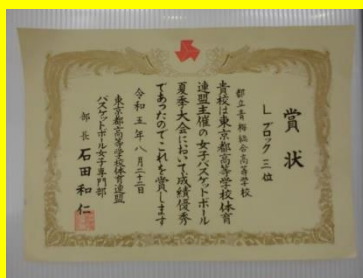 賞状
Lブロック 三位
都立青梅総合高等学校
貴校は東京都高等学校体育
連盟主催の女子バスケットボール
夏季大会において成績優秀
であったのでこれを賞します
令和五年八月二十三日
東京都高等学校体育連盟
バスケットボール女子専門部
部長 石田和仁